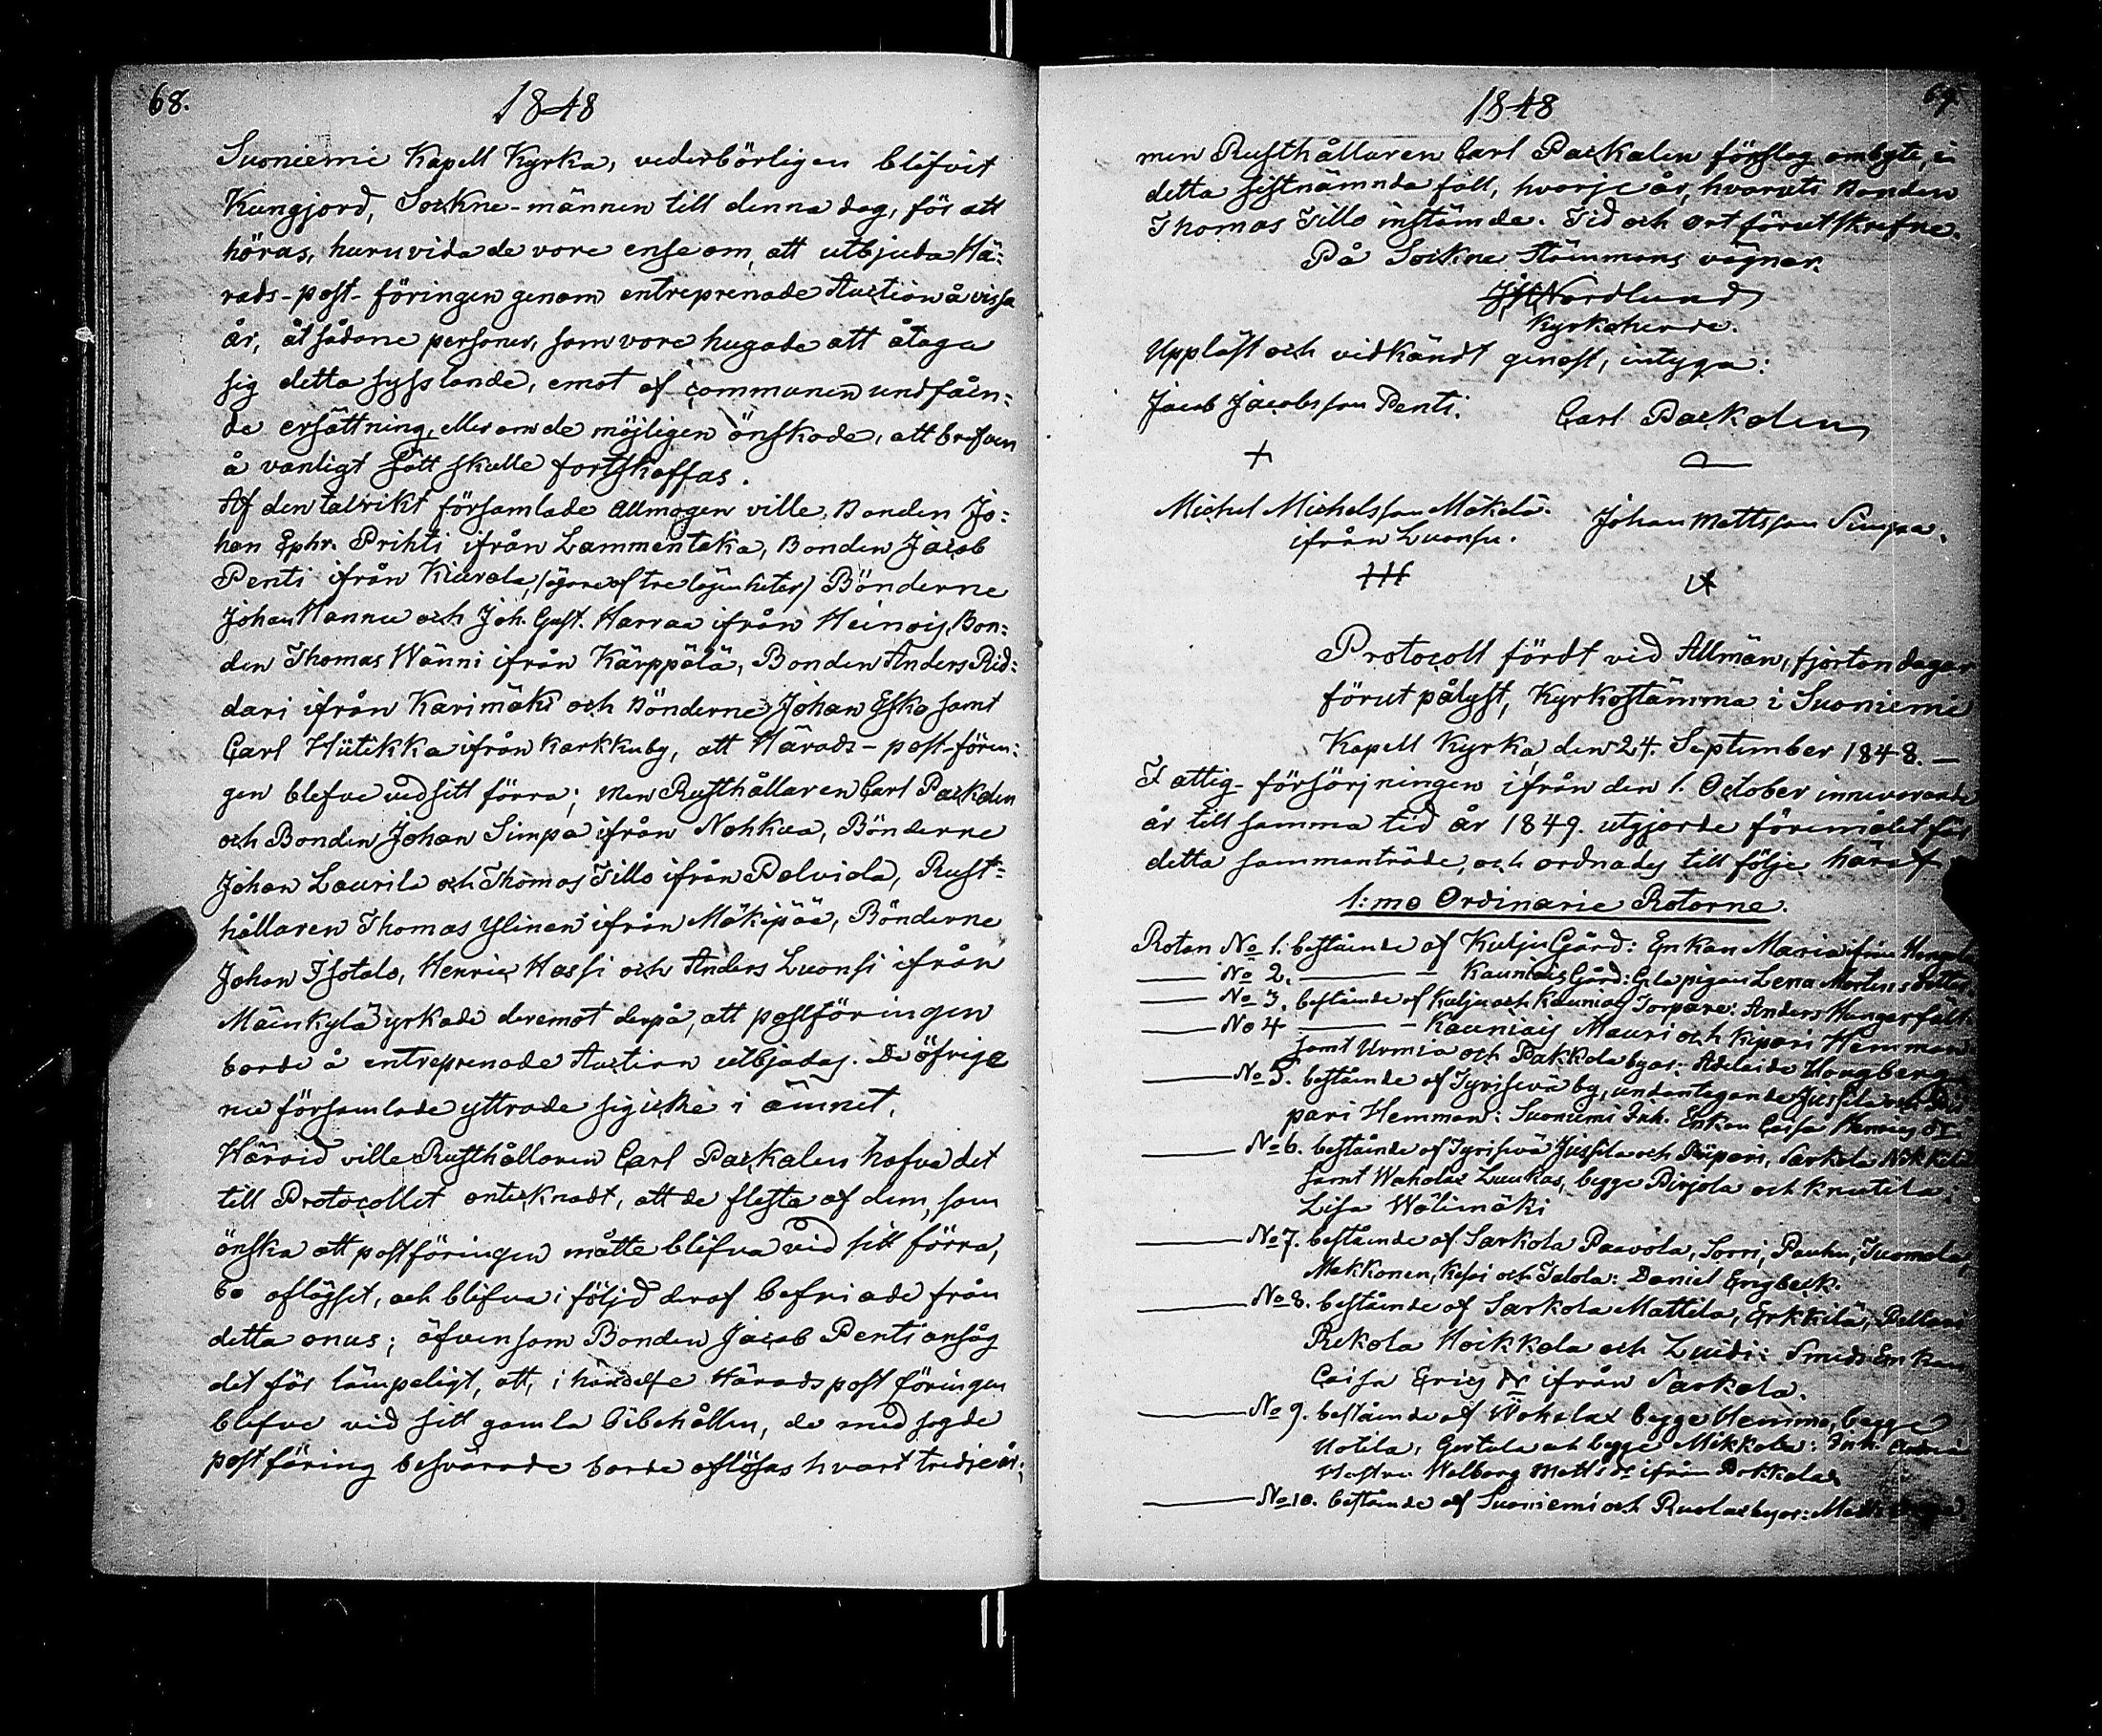 68.
1848
Suoniemi Kapell Kyrka, vederbörligen blifvit
Kungjord, Sockne-männen till denna dag, för att
höras, huruvida de vore ense om, att utbjuda Hä:
rads-post-föringen genom entreprenade Auction å vissa
år, åt sådane personer, som vore hugade att åtaga
sig detta sysslande, emot af communen undfåen:
de ersättning, eller om de möjligen önskade, att brefven
å vanligt sätt skulle fortskaffas.
Af den talrikt församlade Allmogen ville, Bonden Jo:
han Ephr. Prihti ifrån Lammentaka, Bonden Jacob
Penti ifrån Kiurala, (ägare af tre lägenheter) Bönderne
Johan Hannu och Joh. Gust. Harraa ifrån Heinois, Bon:
den Thomas Wänni ifrån Kärppälä, Bonden Anders Rid:
dari ifrån Karimäki och Bönderne Johan Esko samt
Carl Hiitikka ifrån Karkkuby, att Härads-post-förin:
gen blefve vid sitt förra; men Rusthållaren Carl Packalen
och Bonden Johan Simpa ifrån Nohkua, Bönderne
Johan Laurila och Thomas Tillo ifrån Palviala, Rust:
hållaren Thomas Ylinen ifrån Mäkipää, Bönderne
Johan Isotalo, Henric Hassi och Anders Luonsi ifrån
Mäenkylä yrkade deremot derpå, att postföringen
borde å entreprenade Auction utbjudas. De öfrige
nu församlade yttrade sig icke i ämnet.
Härvid ville Rusthållaren Carl Packalen hafva det
till Protocollet antecknadt, att de flesta af dem, som
önska att postföringen måtte blifva vid sitt förra,
bo aflägset, och blifva i följd deraf befriade från
detta onus; äfvensom Bonden Jacob Penti ansåg
det för lämpeligt, att, i händelse Häradspostföringen
blefve vid sitt gamla bibehållen, de med sagde
postföring besvärade borde aflösas hvart tredje år;
69.
1848
men Rusthållaren Carl Packalen föreslog ombyte, i
detta sistnämnda fall, hvarje år, hvaruti Bonden
Thomas Tillo instämde. Tid och ort förutskrefne.
På Sockne Stämmans vägnar.
Nordlund
Kyrkoherde.
Uppläst och vidkändt genast, intyga:
Jacob Jacobsson Penti. Carl Packalen
Michel Michelsson Mäkelä
ifrån Luonsu. Johan Mattsson Simpa.
Protocoll fördt vid Allmän, fjorton dagar
förut pålyst, Kyrkostämma i Suoniemi
Kapell Kyrka, den 24. September 1848. —
Fattig-försörjningen ifrån den 1. October innevarande
år till samma tid år 1849. utgjorde föremålet för
detta sammanträde, och ordnades till följe häraf
1:mo Ordinarie Rotorne.
Rotan No 1. bestående af Kulju Gård: Enkan Maria ifrån
—— No 2. —— — Kauniais Gård: G:la pigan Lena Mortensdotter.
—— No 3. bestående af Kulju och Kauniais Torpare: Anders Hungerfält.
—— No 4 —— — Kauniais Mauri och Kipari Hemman
samt Urmia och Pakkala byar: Adelaide Hougberg
—— No 5. bestående af Tyrisevä by, undantagande Jussila och
pari Hemman: Suoniemi Inh. Enkan Caisa Henrics dr
—— No 6. bestående af Tyrisevä Jussila och Piipari, Sarkola Nikkilä
samt Wahalax Luukas, begge Pirjola och Knutila:
Lisa Wälimäki
—— No 7. bestående af Sarkola Paavola, Sorri, Pauhu, Tuomola,
Makkonen, Kesoi och Talola: Daniel Engbeck.
—— No 8. bestående af Sarkola Mattila, Erkkilä, Pellari
Rekola Hoikkala och Luidi: Smeds Enkan
Caisa Erics dr ifrån Sarkola.
—— No 9. bestående af Wahalax begge Hemmo, begge
Uotila, Gertula och begge Mikkola: Inh.
Hustru Walborg Matts dr ifrån Pakkala.
—— No 10. bestående af Suoniemi och Ruolax byar: Matts